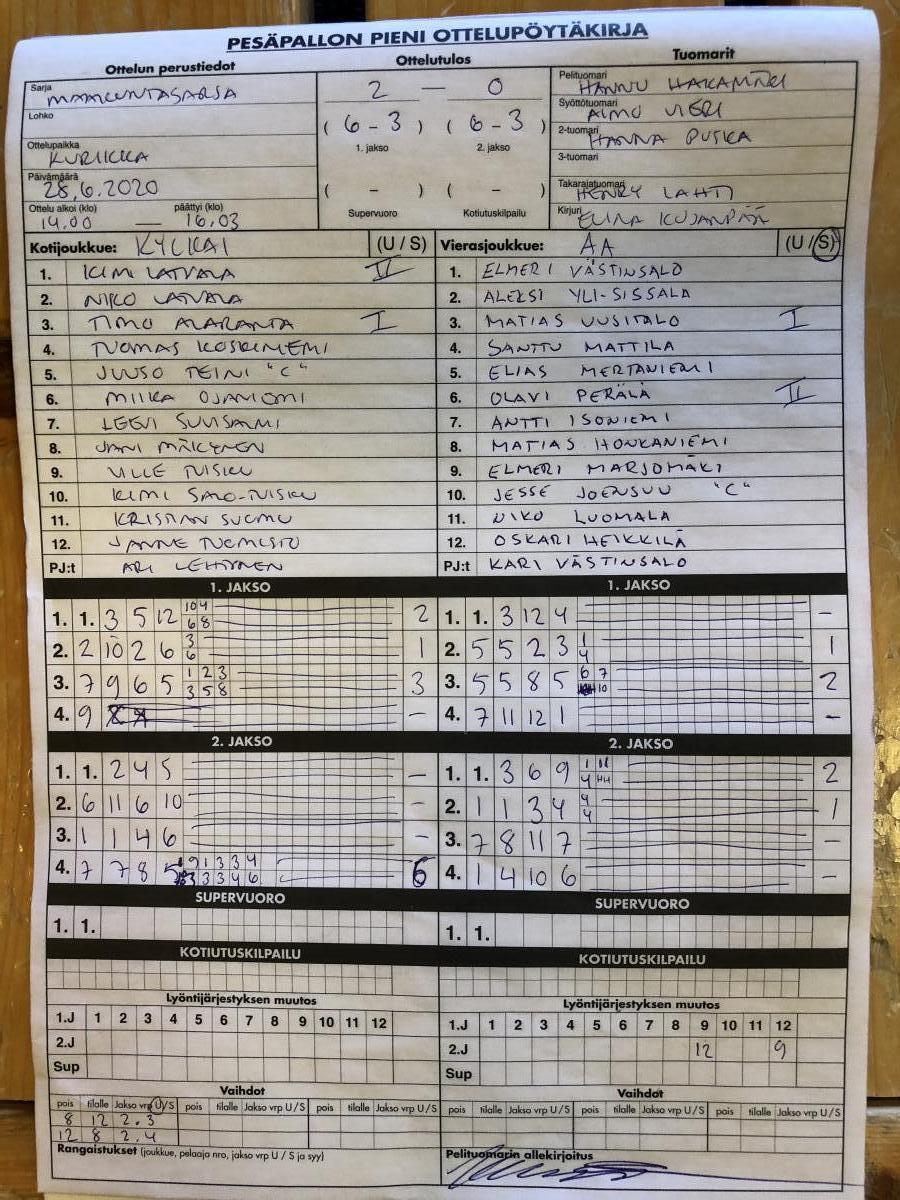 PESÄPALLON PIENI OTTELUPÖYTÄKIRJA
Ottelun perustiedot
Sarja MAAKUNTASARJA
Lohko
Ottelupaikka KURIKKA
Päivämäärä 28.6.2020
Ottelu alkoi (klo) päättyi (klo)
14.00 — 16.03
Ottelutulos
2 — 0
( 6 - 3 ) ( 6 - 3 )
1. jakso 2. jakso
( - ) ( - )
Supervuoro Kotiutuskilpailu
Tuomarit
Pelituomari HANNU HAKAMÄKI
Syöttötuomari AIMO VIERI
2-tuomari HANNA PUSKA
3-tuomari
Takarajatuomari HENRY LAHTI
Kirjuri ELINA KUJANPÄÄ
Kotijoukkue: KYLKAI (U / S)
1. KIMI LATVALA II
2. NIKO LATVALA
3. TIMO ALARANTA I
4. TUOMAS KOSKINIEMI
5. JUUSO TEINI "C"
6. MIIKA OJANIEMI
7. LEEVI
8. JANI MÄKYNEN
9. VILLE TUISKU
10. KIMI SALO-TUISKU
11. KRISTIAN SUOMU
12. JANNE TUOMISTO
PJ:t ARI LEHTINEN
Vierasjoukkue: AA (U / S)
1. ELMERI VÄSTINSALO
2. ALEKSI YLI-SISSALA
3. MATIAS UUSITALO I
4. SANTTU MATTILA
5. ELIAS MERTANIEMI
6. OLAVI PERÄLÄ II
7. ANTTI ISONIEMI
8. MATIAS HONKANIEMI
9. ELMERI MARJOMÄKI
10. JESSE JOENSUU "C"
11. NIKO LUOMALA
12. OSKARI HEIKKILÄ
PJ:t KARI VÄSTINSALO
1. JAKSO
1. 1. 3 5 12 10 4 2
6 8
2. 2 10 2 6 3 1
6
3. 7 9 6 5 1 2 3 3
3 5 8
4. 9 -
1. JAKSO
1. 1. 3 12 4 -
2. 5 5 2 3 1 1
4
3. 5 5 8 5 6 7 2
10
4. 7 11 12 1 -
2. JAKSO
1. 1. 2 4 5 -
2. 6 11 6 10 -
3. 1 1 4 6 -
4. 7 7 8 5 1 9 1 3 3 4 6
3 3 3 4 6
2. JAKSO
1. 1. 3 6 9 1 11 2
4
2. 1 1 3 4 4 1
4
3. 7 8 11 7 -
4. 1 4 10 6 -
SUPERVUORO
1. 1.
SUPERVUORO
1. 1.
KOTIUTUSKILPAILU
KOTIUTUSKILPAILU
Lyöntijärjestyksen muutos
1.J 1 2 3 4 5 6 7 8 9 10 11 12
2.J
Sup
Lyöntijärjestyksen muutos
1.J 1 2 3 4 5 6 7 8 9 10 11 12
2.J 12 9
Sup
Vaihdot
pois tilalle Jakso vrp U/S pois tilalle Jakso vrp U/S pois tilalle Jakso vrp U/S
8 12 2.3
12 8 2.4
Vaihdot
pois tilalle Jakso vrp U/S pois tilalle Jakso vrp U/S pois tilalle Jakso vrp U/S
Rangaistukset (joukkue, pelaaja nro, jakso vrp U / S ja syy)
Pelituomarin allekirjoitus